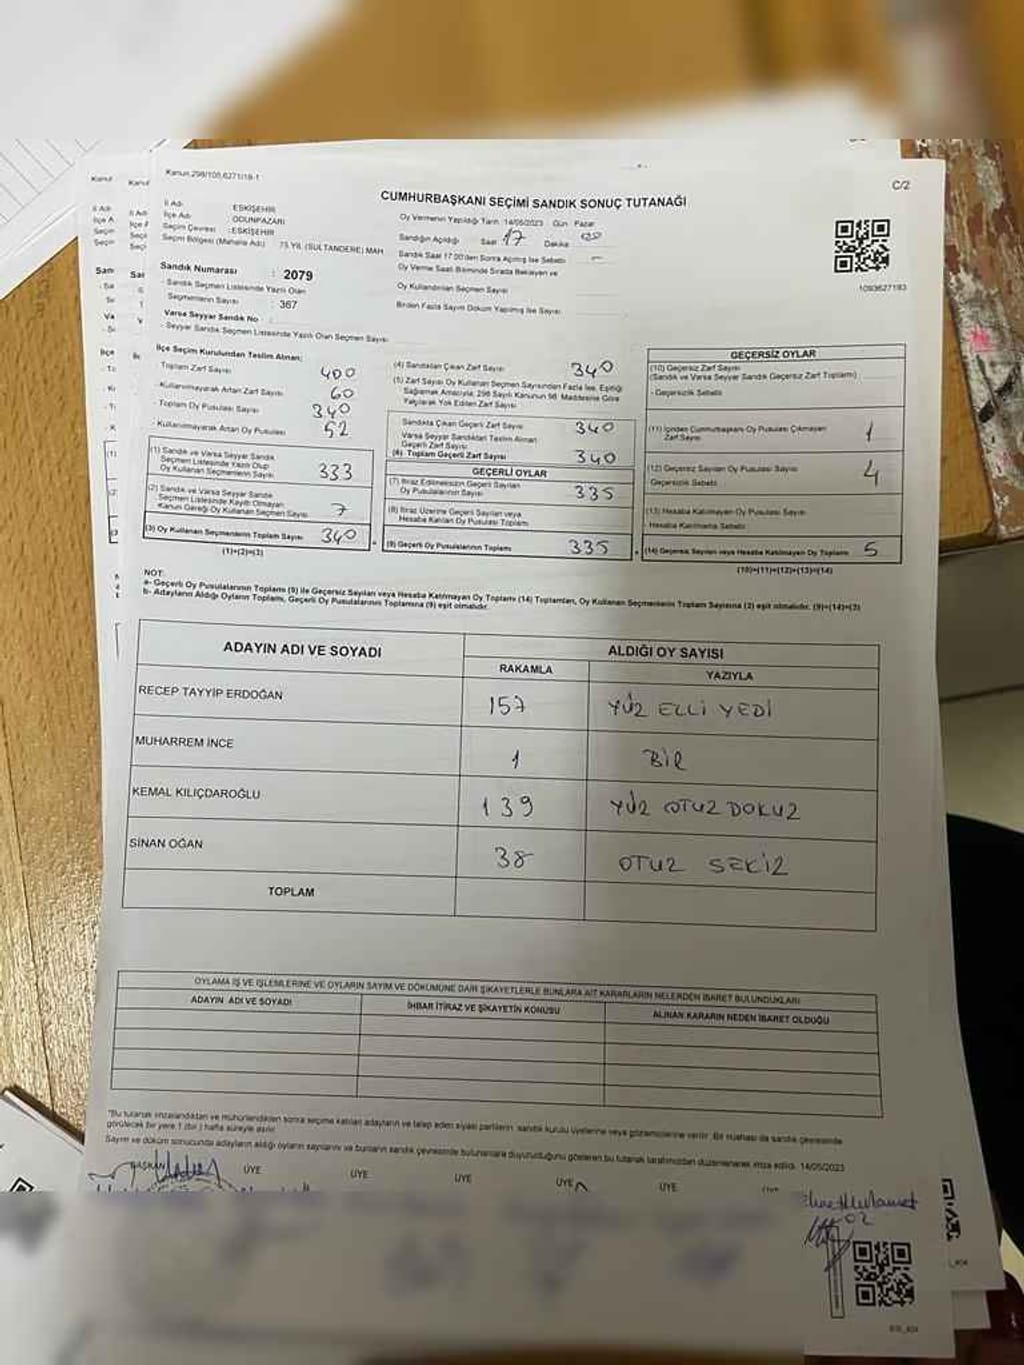 Kanun 298/105,6271/18-1
C/2
CUMHURBAŞKANI SEÇİMİ SANDIK SONUÇ TUTANAĞI
İl Adı : ESKİŞEHİR
İlçe Adı : ODUNPAZARI
Seçim Çevresi : ESKİŞEHİR
Seçim Bölgesi (Mahalle Adı) : 75.YIL (SULTANDERE) MAH
Sandık Numarası : 2079
- Sandık Seçmen Listesinde Yazılı Olan
Seçmenlerin Sayısı : 367
Varsa Seyyar Sandık No
- Seyyar Sandık Seçmen Listesinde Yazılı Olan Seçmen Sayısı
Oy Vermenin Yapıldığı Tarih: 14/05/2023 Gün: Pazar
Sandığın Açıldığı Saat 17 Dakika
Sandık Saat 17.00'den Sonra Açılmış İse Sebebi
Oy Verme Saati Bitiminde Sırada Bekleyen ve
Oy Kullandırılan Seçmen Sayısı
Birden Fazla Sayım Döküm Yapılmış İse Sayısı
1093627193
İlçe Seçim Kurulundan Teslim Alınan:
- Toplam Zarf Sayısı 400
- Kullanılmayarak Artan Zarf Sayısı 60
- Toplam Oy Pusulası Sayısı 340
- Kullanılmayarak Artan Oy Pusulası 52
(1) Sandık ve Varsa Seyyar Sandık
Seçmen Listesinde Yazılı Olup
Oy Kullanan Seçmenlerin Sayısı 333
(2) Sandık ve Varsa Seyyar Sandık
Seçmen Listesinde Kayıtlı Olmayan
Kanun Gereği Oy Kullanan Seçmen Sayısı 7
(3) Oy Kullanan Seçmenlerin Toplam Sayısı 340
(1)+(2)=(3)
(4) Sandıktan Çıkan Zarf Sayısı 340
(5) Zarf Sayısı Oy Kullanan Seçmen Sayısından Fazla İse, Eşitliği
Sağlamak Amacıyla, 298 Sayılı Kanunun 98. Maddesine Göre
Yakılarak Yok Edilen Zarf Sayısı
Sandıkta Çıkan Geçerli Zarf Sayısı 340
Varsa Seyyar Sandıktan Teslim Alınan
Geçerli Zarf Sayısı
(6) Toplam Geçerli Zarf Sayısı 340
GEÇERLİ OYLAR
(7) İtiraz Edilmeksizin Geçerli Sayılan
Oy Pusulalarının Sayısı 335
(8) İtiraz Üzerine Geçerli Sayılan veya
Hesaba Katılan Oy Pusulası Toplamı
(9) Geçerli Oy Pusulalarının Toplamı 335
GEÇERSİZ OYLAR
(10) Geçersiz Zarf Sayısı
(Sandık ve Varsa Seyyar Sandık Geçersiz Zarf Toplamı)
- Geçersizlik Sebebi
(11) İçinden Cumhurbaşkanı Oy Pusulası Çıkmayan
Zarf Sayısı 1
(12) Geçersiz Sayılan Oy Pusulası Sayısı 4
Geçersizlik Sebebi
(13) Hesaba Katılmayan Oy Pusulası Sayısı
- Hesaba Katılmama Sebebi
(14) Geçersiz Sayılan veya Hesaba Katılmayan Oy Toplamı 5
(10)+(11)+(12)+(13)=(14)
NOT:
a- Geçerli Oy Pusulalarının Toplamı (9) ile Geçersiz Sayılan veya Hesaba Katılmayan Oy Toplamı (14) Toplamları, Oy Kullanan Seçmenlerin Toplam Sayısına (3) eşit olmalıdır. (9)+(14)=(3)
b- Adayların Aldığı Oyların Toplamı, Geçerli Oy Pusulalarının Toplamına (9) eşit olmalıdır.
ADAYIN ADI VE SOYADI
ALDIĞI OY SAYISI
RAKAMLA YAZIYLA
RECEP TAYYİP ERDOĞAN 157 YÜZ ELLİ YEDİ
MUHARREM İNCE 1 BİR
KEMAL KILIÇDAROĞLU 139 YÜZ OTUZ DOKUZ
SİNAN OĞAN 38 OTUZ SEKİZ
TOPLAM
OYLAMA İŞ VE İŞLEMLERİNE VE OYLARIN SAYIM VE DÖKÜMÜNE DAİR ŞİKAYETLERLE BUNLARA AİT KARARLARIN NELERDEN İBARET BULUNDUKLARI
ADAYIN ADI VE SOYADI İHBAR İTİRAZ VE ŞİKAYETİN KONUSU ALINAN KARARIN NEDEN İBARET OLDUĞU
"Bu tutanak imzalandıktan ve mühürlendikten sonra seçime katılan adayların ve talep eden siyasi partilerin sandık kurulu üyelerine veya gözlemcilerine verilir. Bir nüshası da sandık çevresinde
görülecek bir yere 1 (bir) hafta süreyle asılır.
Sayım ve döküm sonucunda adayların aldığı oyların sayılarını ve bunların sandık çevresinde bulunanlara duyurulduğunu gösteren bu tutanak tarafımızdan düzenlenerek imza edildi. 14/05/2023
BAŞKAN ÜYE ÜYE ÜYE ÜYE ÜYE